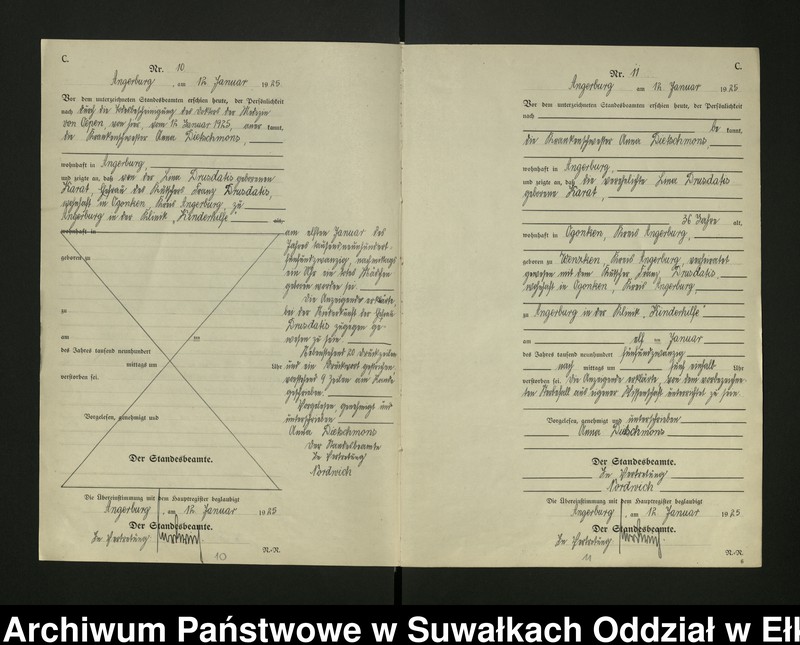 C.
Nr. 10
Angerburg, am 12 Januar 1925
Vor dem unterzeichneten Standesbeamten erschien heute, der Persönlichkeit
nach durch die Bescheinigung des Doktors der Medizin
von hier, vom 12 Januar 1925, aner kannt,
die Krankenschwester Anna Dietschmons,
wohnhaft in Angerburg,
und zeigte an, daß von der Lina Drusdatis geborenen
Karat, Ehefrau des Kutschers Franz Drusdatis,
wohnhaft in Ogonken, Kreis Angerburg, zu
Angerburg in der Klinik „Kinderhilfe“ alt,
wohnhaft in
geboren zu
zu
am ten
des Jahres tausend neunhundert
mittags um Uhr
verstorben sei.
Vorgelesen, genehmigt und
Der Standesbeamte.
am elften Januar des
Jahres tausendneunhundert
fünfundzwanzig, nachmittags
ein Uhr ein totes Mädchen
geboren worden sei
Die Anzeigende erklärte,
bei der Niederkunft der Ehefrau
Drusdatis zugegen ge-
wesen zu sein.
Nebenstehend 20 Druckzeilen
und ein Druckwort gestrichen,
vorstehend 9 Zeilen am Rande
geschrieben.
Vorgelesen genehmigt und
unterschrieben
Anna Dietschmons
Der Standesbeamte
In Vertretung
Nordwich
Die Übereinstimmung mit dem Hauptregister beglaubigt
Angerburg, am 12 Januar 1925
Der Standesbeamte.
In Vertretung
10
R.-R.
C.
Nr. 11
Angerburg am 12 Januar 1925
Vor dem unterzeichneten Standesbeamten erschien heute, der Persönlichkeit
nach
be kannt,
die Krankenschwester Anna Dietschmons,
wohnhaft in Angerburg,
und zeigte an, daß die verehelichte Lina Drusdatis
geborene Karat,
36 Jahre alt,
wohnhaft in Ogonken, Kreis Angerburg,
geboren zu Wensken, Kreis Angerburg, verheiratet
gewesen mit dem Kutscher Franz Drusdatis,
wohnhaft in Ogonken, Kreis Angerburg,
zu Angerburg in der Klinik „Kinderhilfe“
am elf ten Januar
des Jahres tausend neunhundert fünfundzwanzig
nach mittags um fünf einhalb Uhr
verstorben sei. Die Anzeigende erklärte, von dem vorbezeichne-
ten Sterbefall aus eigener Wissenschaft unterrichtet zu sein
Vorgelesen, genehmigt und unterschrieben
Anna Dietschmons
Der Standesbeamte.
In Vertretung
Nordwich
Die Übereinstimmung mit dem Hauptregister beglaubigt
Angerburg, am 12 Januar 1925
Der Standesbeamte.
In Vertretung
11
R.-R.
6
Archiwum Państwowe w Suwałkach Oddział w Ełk